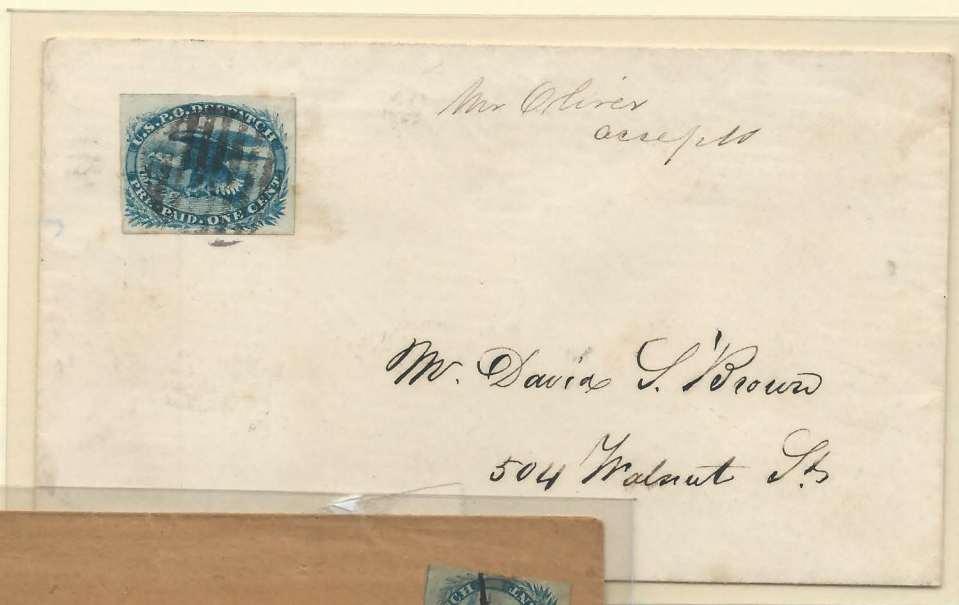 U.S.P.O. DESPATCH
PRE-PAID. ONE CENT
Mr Oliver
accepts
Mr. David S. Brown
504 Walnut St
CH
ENT